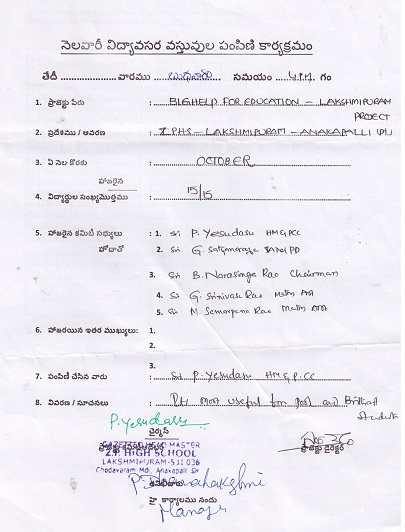 నెలవారీ విద్యావసర వస్తువుల పంపిణి కార్యక్రమం
తేదీ ..................... వారము బుధవారం సమయం 4 P.M. గం
1. ప్రాజెక్టు పేరు : BIGHELP FOR EDUCATION - LAKSHMIPURAM
PROJECT
2. ప్రదేశము / ఆవరణ : Z.PHS - LAKSHMIPURAM - ANAKAPALLI
3. ఏ నెల కొరకు : OCTOBER
హాజరైన
4. విద్యార్థుల సంఖ్య మొత్తము : 15/15
5. హాజరైన కమిటి సభ్యులు : 1. Sri P. Yesudasu HM G.P.CC
హోదాతో 2. Sri G. Satyanarayana
3. Sri B. Narasinga Rao Chairman
4. Sri G. Srinivasa Rao Maths
5. Sri M. Rao Maths
6. హాజరయిన ఇతర ముఖ్యులు: 1.
2.
3.
7. పంపిణి చేసిన వారు : Sri P. Yesudasu HM G.P.CC
8. వివరణ / సూచనలు : most useful for poor and Brilliant
Students
P. Yesudasu
ఛైర్మన్
GAZETTED HEAD MASTER
Z.P. HIGH SCHOOL
LAKSHMIPURAM-531 036
Chodavaram Md, Anakapalli Dt
ప్రాజెక్టు డైరెక్టర్
హై కార్యాలము నందు
Manager